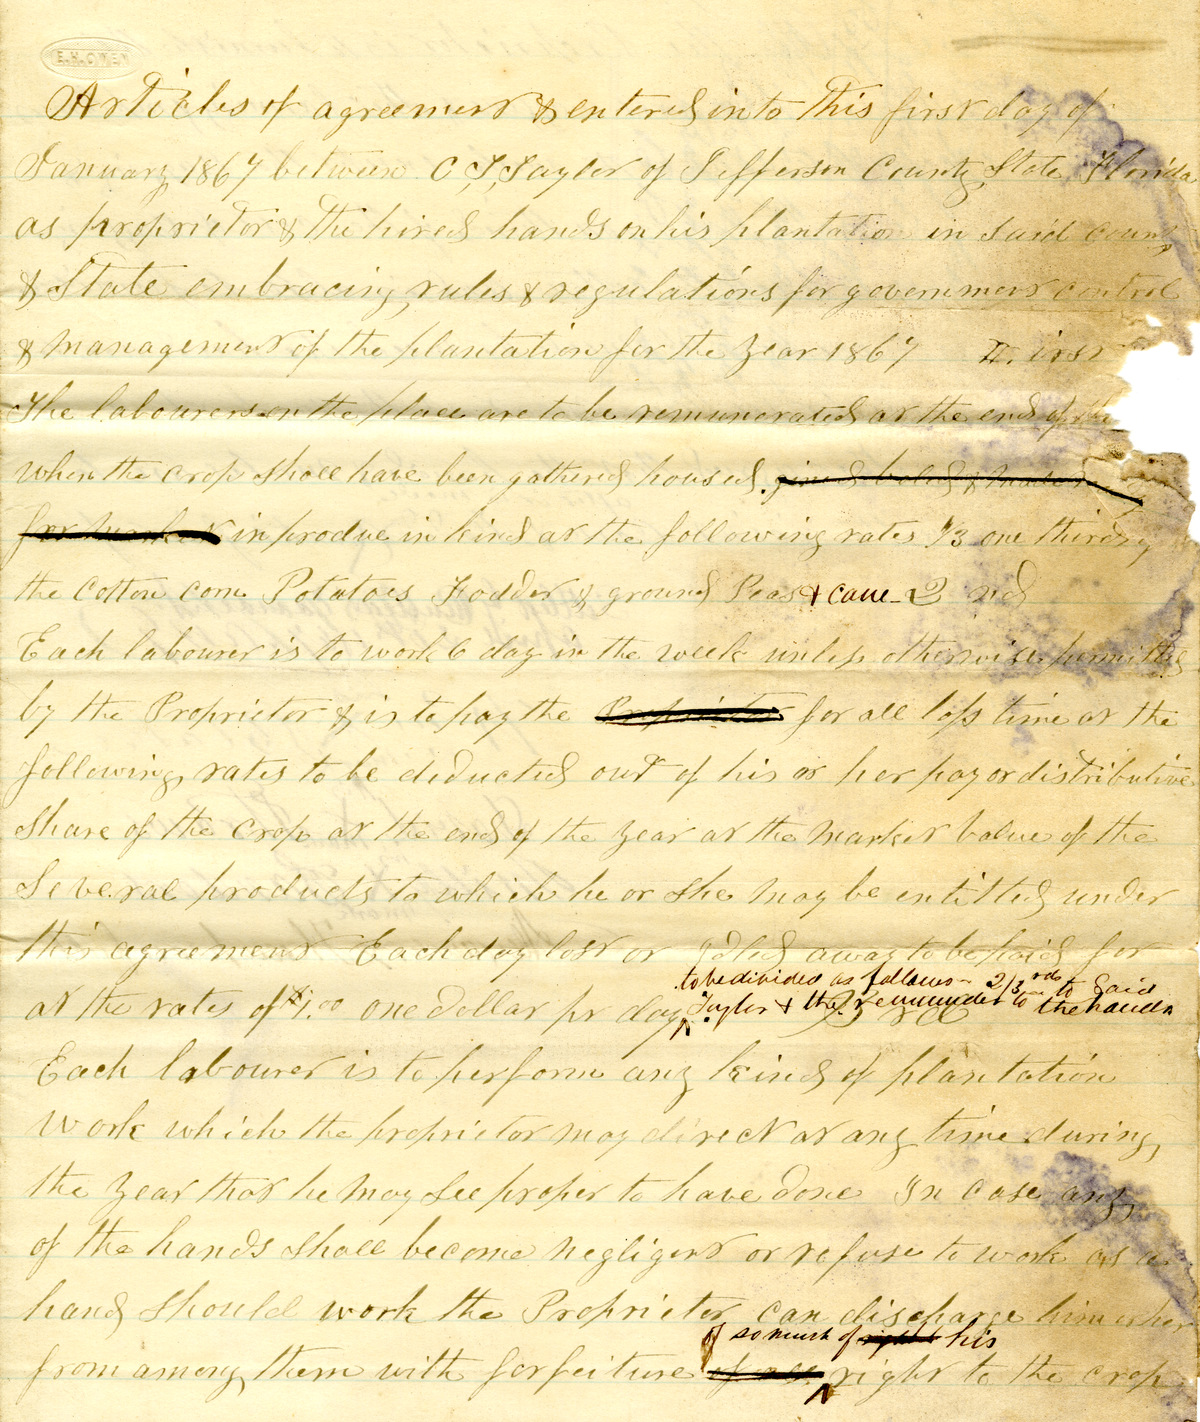 E.H.OWEN
Articles of agreement & entered into this first day of
January 1867 between C T Taylor of Jefferson County State Florida
as proprietor & the hired hands on his plantation in said county
& State embracing rules & regulations for government control
& management of the plantation for the year 1867 First
The labourers on the place are to be remunerated at the end of the
when the crop shall have been gathered housed gined baled & made
for market in produe in kind at the following rates 1/3 one third
the cotton corn Potatoes Fodder & ground Peas & cane 2 nd
Each labourer is to work 6 day in the week unless otherwise permitted
by the Proprietor & is to pay the Proprietor for all loss time at the
following rates to be deducted out of his or her pay or distributive
share of the crop at the end of the year at the market value of the
several products to which he or she may be entitled under
this agreement Each day lost or idled away to be paid for
to be divided as follows - 2/3rds to Said
at the rates of $1.00 one dollar pr day Taylor & the remainder to the hands
Each labourer is to perform any kind of plantation
work which the proprietor may direct at any time during
the year that he may see proper to have done In case any
of the hands shall become negligent or refuse to work as a
hand should work the Proprietor can discharge him or her
of so much of right his
from among them with forfeiture of all right to the crop